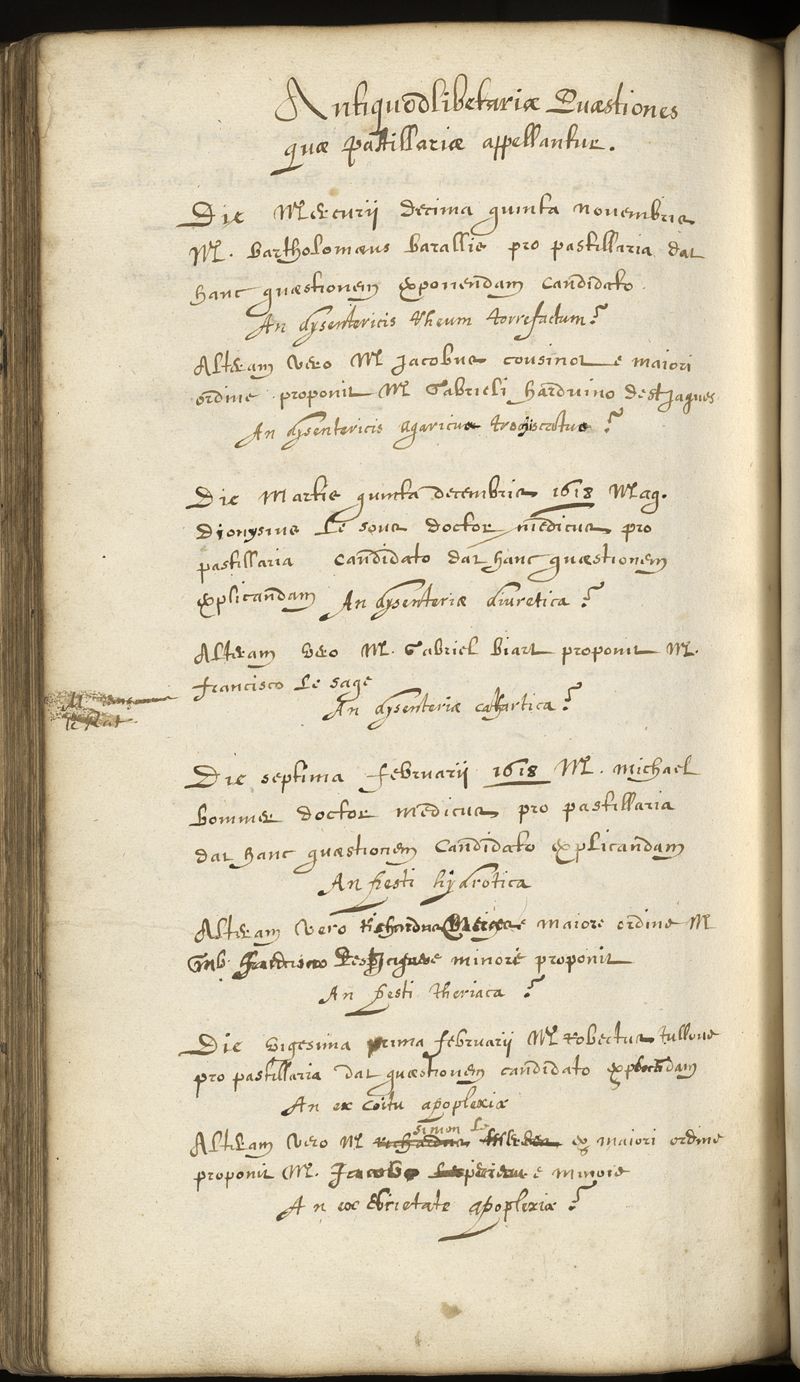 Antiquodlibetariæ Quæstiones
quæ pastillariæ appellantur.
Die Mercurii decima quinta novembris
M. Bartholomæus Barallis pro pastillaria dat
hanc quæstionem exponendam candidato.
An dysentericis rheum torrefactum?
Alteram vero M Jacobus Cousinot e maiori
ordine proponit M Gabrieli harduino destJagues
An dysentericis agaricus trochiscatus?
Die Martis quinta decembris 1618 Mag.
dionysius Le soue doctor medicus pro
pastillaria candidato dat hanc quæstionem
explicandam An dysenteriæ diuretica?
Alteram vero M. Gabriel Biart proponit M.
francisco Le sage
An dysenteriæ cathartica?
Die septima februarii 1618 M. Michael
Bommer doctor medicus pro pastillaria
dat hanc quæstionem candidato explicandam
An pesti hydrotica
Alteram vero Richardus e maiore ordine M
Gab. minore proponit
An pesti theriaca?
Die vigesima prima februarii M Robertus tullone
pro pastillaria dat quæstionem candidato
An ex coitu apoplexia
simon Le
Alteram vero M ex maiori ordine
proponit M. Jacobo e minore
An ex ebrietate apoplexia?